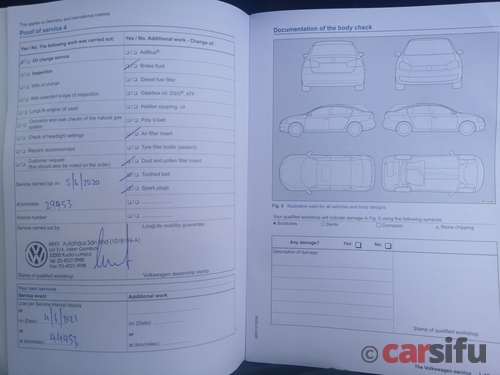 This applies to Germany and international markets
Proof of service 4
Yes / No The following work was carried out:
Oil change service
Inspection
With oil change
With extended scope of inspection
LongLife engine oil used
Corrosion and leak checks of the natural gas system
Check of headlight settings
Repairs recommended
Customer request
(this should also be noted on the order)
Service carried out on: 5/6/2020
at km/miles: 29453
Invoice number:
Service carried out by:
MHV Autohaus Sdn Bhd
53000 Kuala Lumpur
Stamp of qualified workshop
Yes / No Additional work - Change of
AdBlue®
Brake fluid
Diesel fuel filter
Gearbox oil: DSG®, ATF
Haldex coupling: oil
Poly V-belt
Air filter insert
Tyre filler bottle (sealant)
Dust and pollen filter insert
Toothed belt
Spark plugs
LongLife mobility guarantee
Volkswagen dealership stamp
Your next services
Service event
Additional work
as per Service interval display
or
on (Date): 4/6/2021
or
at (km/miles): 44453
on (Date):
or
at (km/miles):
Documentation of the body check
Fig. 5 Illustration valid for all vehicles and body designs.
Your qualified workshop will indicate damage in Fig. 5 using the following symbols:
Scratches
Dents
Corrosion
Stone chipping
Any damage? Yes: No:
Description of damage:
Stamp of qualified workshop
The Volkswagen service
© carsifu